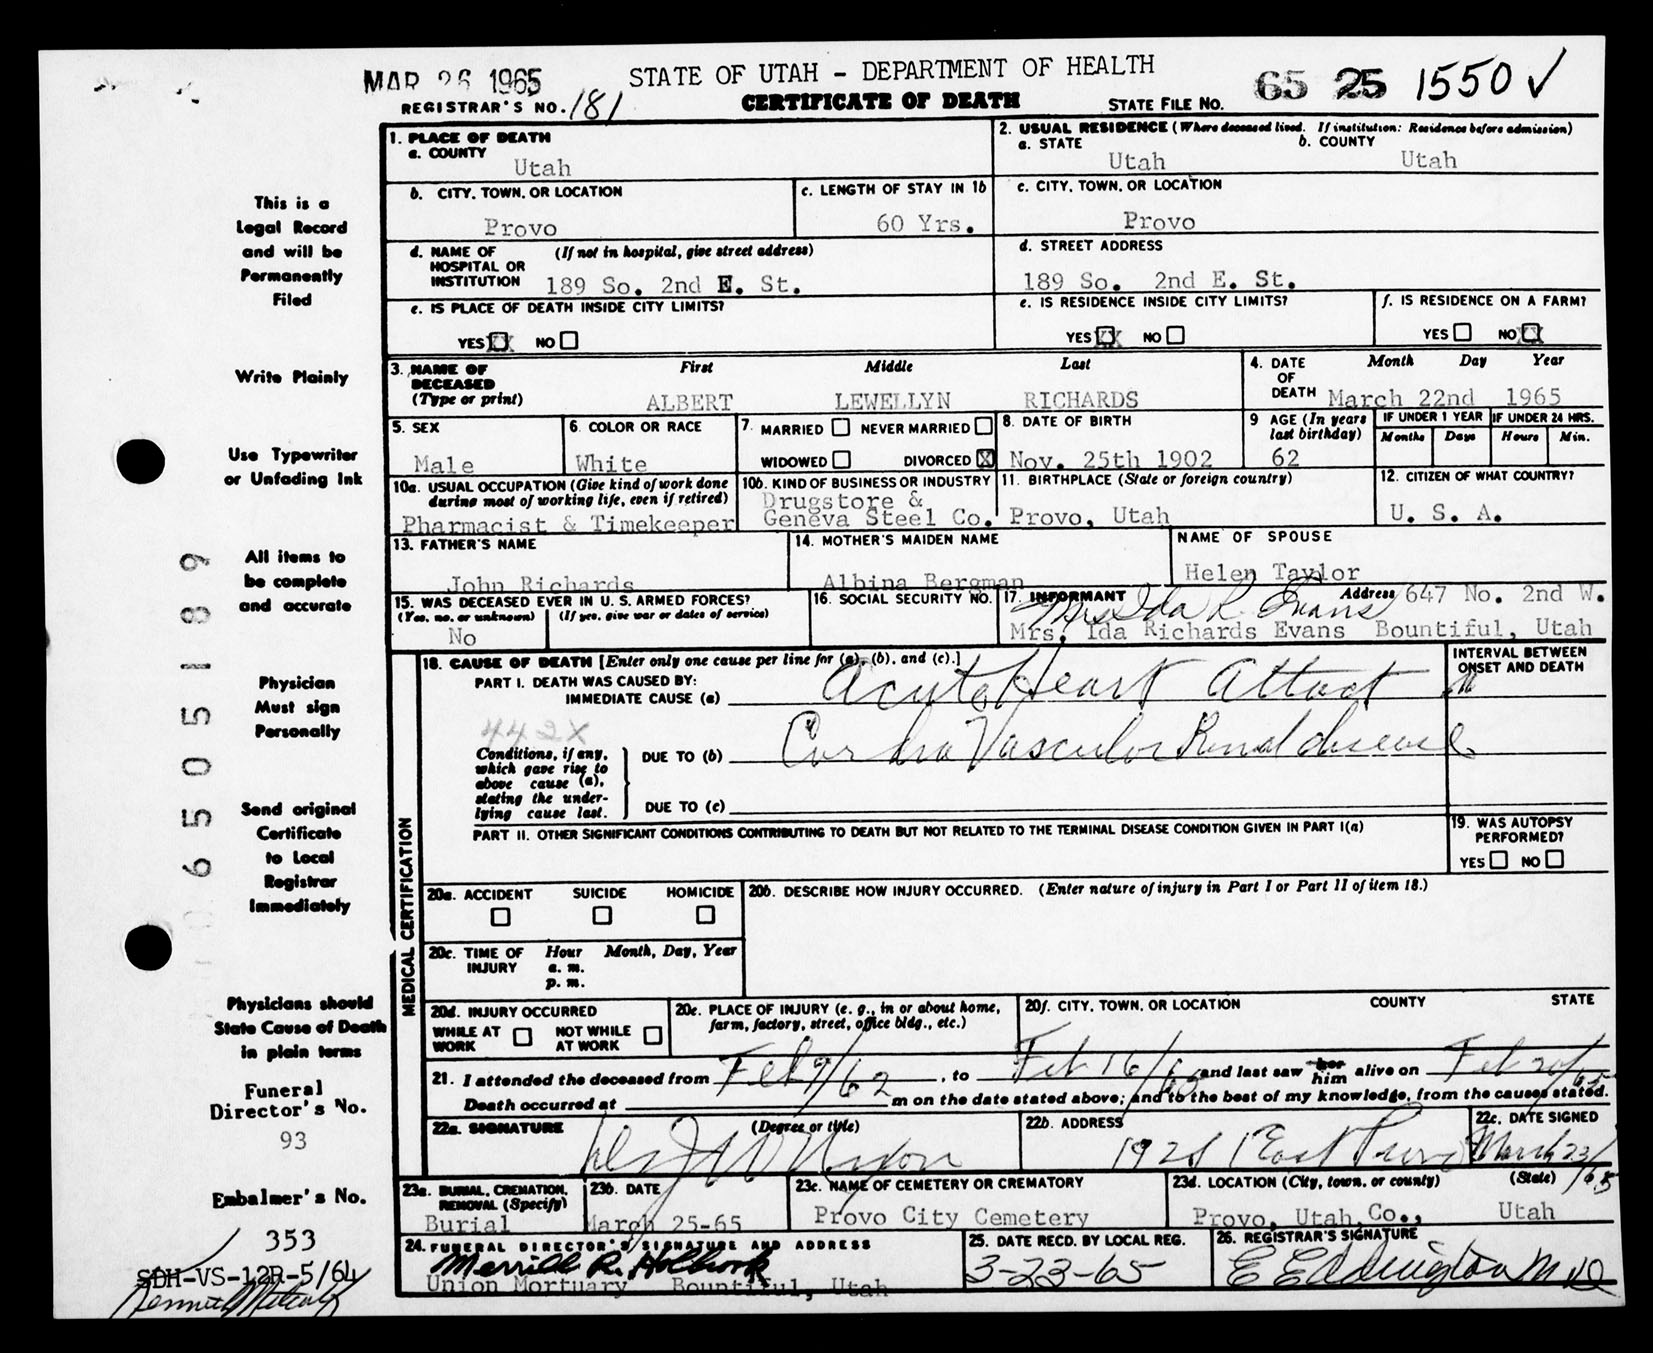 MAR 26 1965 STATE OF UTAH - DEPARTMENT OF HEALTH 65 25 1550 ✓
REGISTRAR'S NO. 181 CERTIFICATE OF DEATH STATE FILE NO.
1. PLACE OF DEATH
a. COUNTY
Utah
2. USUAL RESIDENCE (Where deceased lived. If institution: Residence before admission)
a. STATE b. COUNTY
Utah Utah
b. CITY, TOWN, OR LOCATION
Provo
c. LENGTH OF STAY IN 1b
60 Yrs.
c. CITY, TOWN, OR LOCATION
Provo
d. NAME OF HOSPITAL OR INSTITUTION (If not in hospital, give street address)
189 So. 2nd E. St.
d. STREET ADDRESS
189 So. 2nd E. St.
e. IS PLACE OF DEATH INSIDE CITY LIMITS?
YES XX NO
e. IS RESIDENCE INSIDE CITY LIMITS?
YES XX NO
f. IS RESIDENCE ON A FARM?
YES NO XX
3. NAME OF DECEASED (Type or print)
First Middle Last
ALBERT LEWELLYN RICHARDS
4. DATE OF DEATH
Month Day Year
March 22nd 1965
5. SEX
Male
6. COLOR OR RACE
White
7. MARRIED NEVER MARRIED
WIDOWED DIVORCED X
8. DATE OF BIRTH
Nov. 25th 1902
9 AGE (In years last birthday)
62
IF UNDER 1 YEAR IF UNDER 24 HRS.
Months Days Hours Min.
10a. USUAL OCCUPATION (Give kind of work done during most of working life, even if retired)
Pharmacist & Timekeeper
10b. KIND OF BUSINESS OR INDUSTRY
Drugstore &
Geneva Steel Co.
11. BIRTHPLACE (State or foreign country)
Provo, Utah
12. CITIZEN OF WHAT COUNTRY?
U. S. A.
13. FATHER'S NAME
John Richards
14. MOTHER'S MAIDEN NAME
Albina Bergman
NAME OF SPOUSE
Helen Taylor
15. WAS DECEASED EVER IN U. S. ARMED FORCES?
(Yes, no, or unknown) (If yes, give war or dates of service)
No
16. SOCIAL SECURITY NO.
17. INFORMANT Address 647 No. 2nd W.
Mrs Ida R. Evans
Mrs. Ida Richards Evans Bountiful, Utah
MEDICAL CERTIFICATION
18. CAUSE OF DEATH [Enter only one cause per line for (a), (b), and (c).]
PART I. DEATH WAS CAUSED BY:
IMMEDIATE CAUSE (a) Acute Heart Attack
INTERVAL BETWEEN ONSET AND DEATH
442X
Conditions, if any, which gave rise to above cause (a), stating the underlying cause last.
DUE TO (b) Cardio Vascular Renal disease
DUE TO (c)
PART II. OTHER SIGNIFICANT CONDITIONS CONTRIBUTING TO DEATH BUT NOT RELATED TO THE TERMINAL DISEASE CONDITION GIVEN IN PART I(a)
19. WAS AUTOPSY PERFORMED?
YES NO
20a. ACCIDENT SUICIDE HOMICIDE
20b. DESCRIBE HOW INJURY OCCURRED. (Enter nature of injury in Part I or Part II of item 18.)
20c. TIME OF INJURY Hour Month, Day, Year
a. m.
p. m.
20d. INJURY OCCURRED
WHILE AT WORK NOT WHILE AT WORK
20e. PLACE OF INJURY (e. g., in or about home, farm, factory, street, office bldg., etc.)
20f. CITY, TOWN, OR LOCATION COUNTY STATE
21. I attended the deceased from Feb 9/62, to Feb 16/65 and last saw her him alive on Feb 20/65
Death occurred at m on the date stated above; and to the best of my knowledge, from the causes stated.
22a. SIGNATURE (Degree or title)
22b. ADDRESS
1 East Provo
22c. DATE SIGNED
March 23/65
23a. BURIAL, CREMATION, REMOVAL (Specify)
Burial
23b. DATE
March 25-65
23c. NAME OF CEMETERY OR CREMATORY
Provo City Cemetery
23d. LOCATION (City, town, or county) (State)
Provo, Utah Co., Utah
24. FUNERAL DIRECTOR'S SIGNATURE AND ADDRESS
Merrill R. Holbrook
Union Mortuary Bountiful, Utah
25. DATE RECD. BY LOCAL REG.
3-23-65
26. REGISTRAR'S SIGNATURE
This is a
Legal Record
and will be
Permanently
Filed
Write Plainly
Use Typewriter
or Unfading Ink
All items to
be complete
and accurate
Physician
Must sign
Personally
Send original
Certificate
to Local
Registrar
Immediately
Physicians should
State Cause of Death
in plain terms
Funeral
Director's No.
93
Embalmer's No.
353
SDH-VS-12R-5/64
6505189